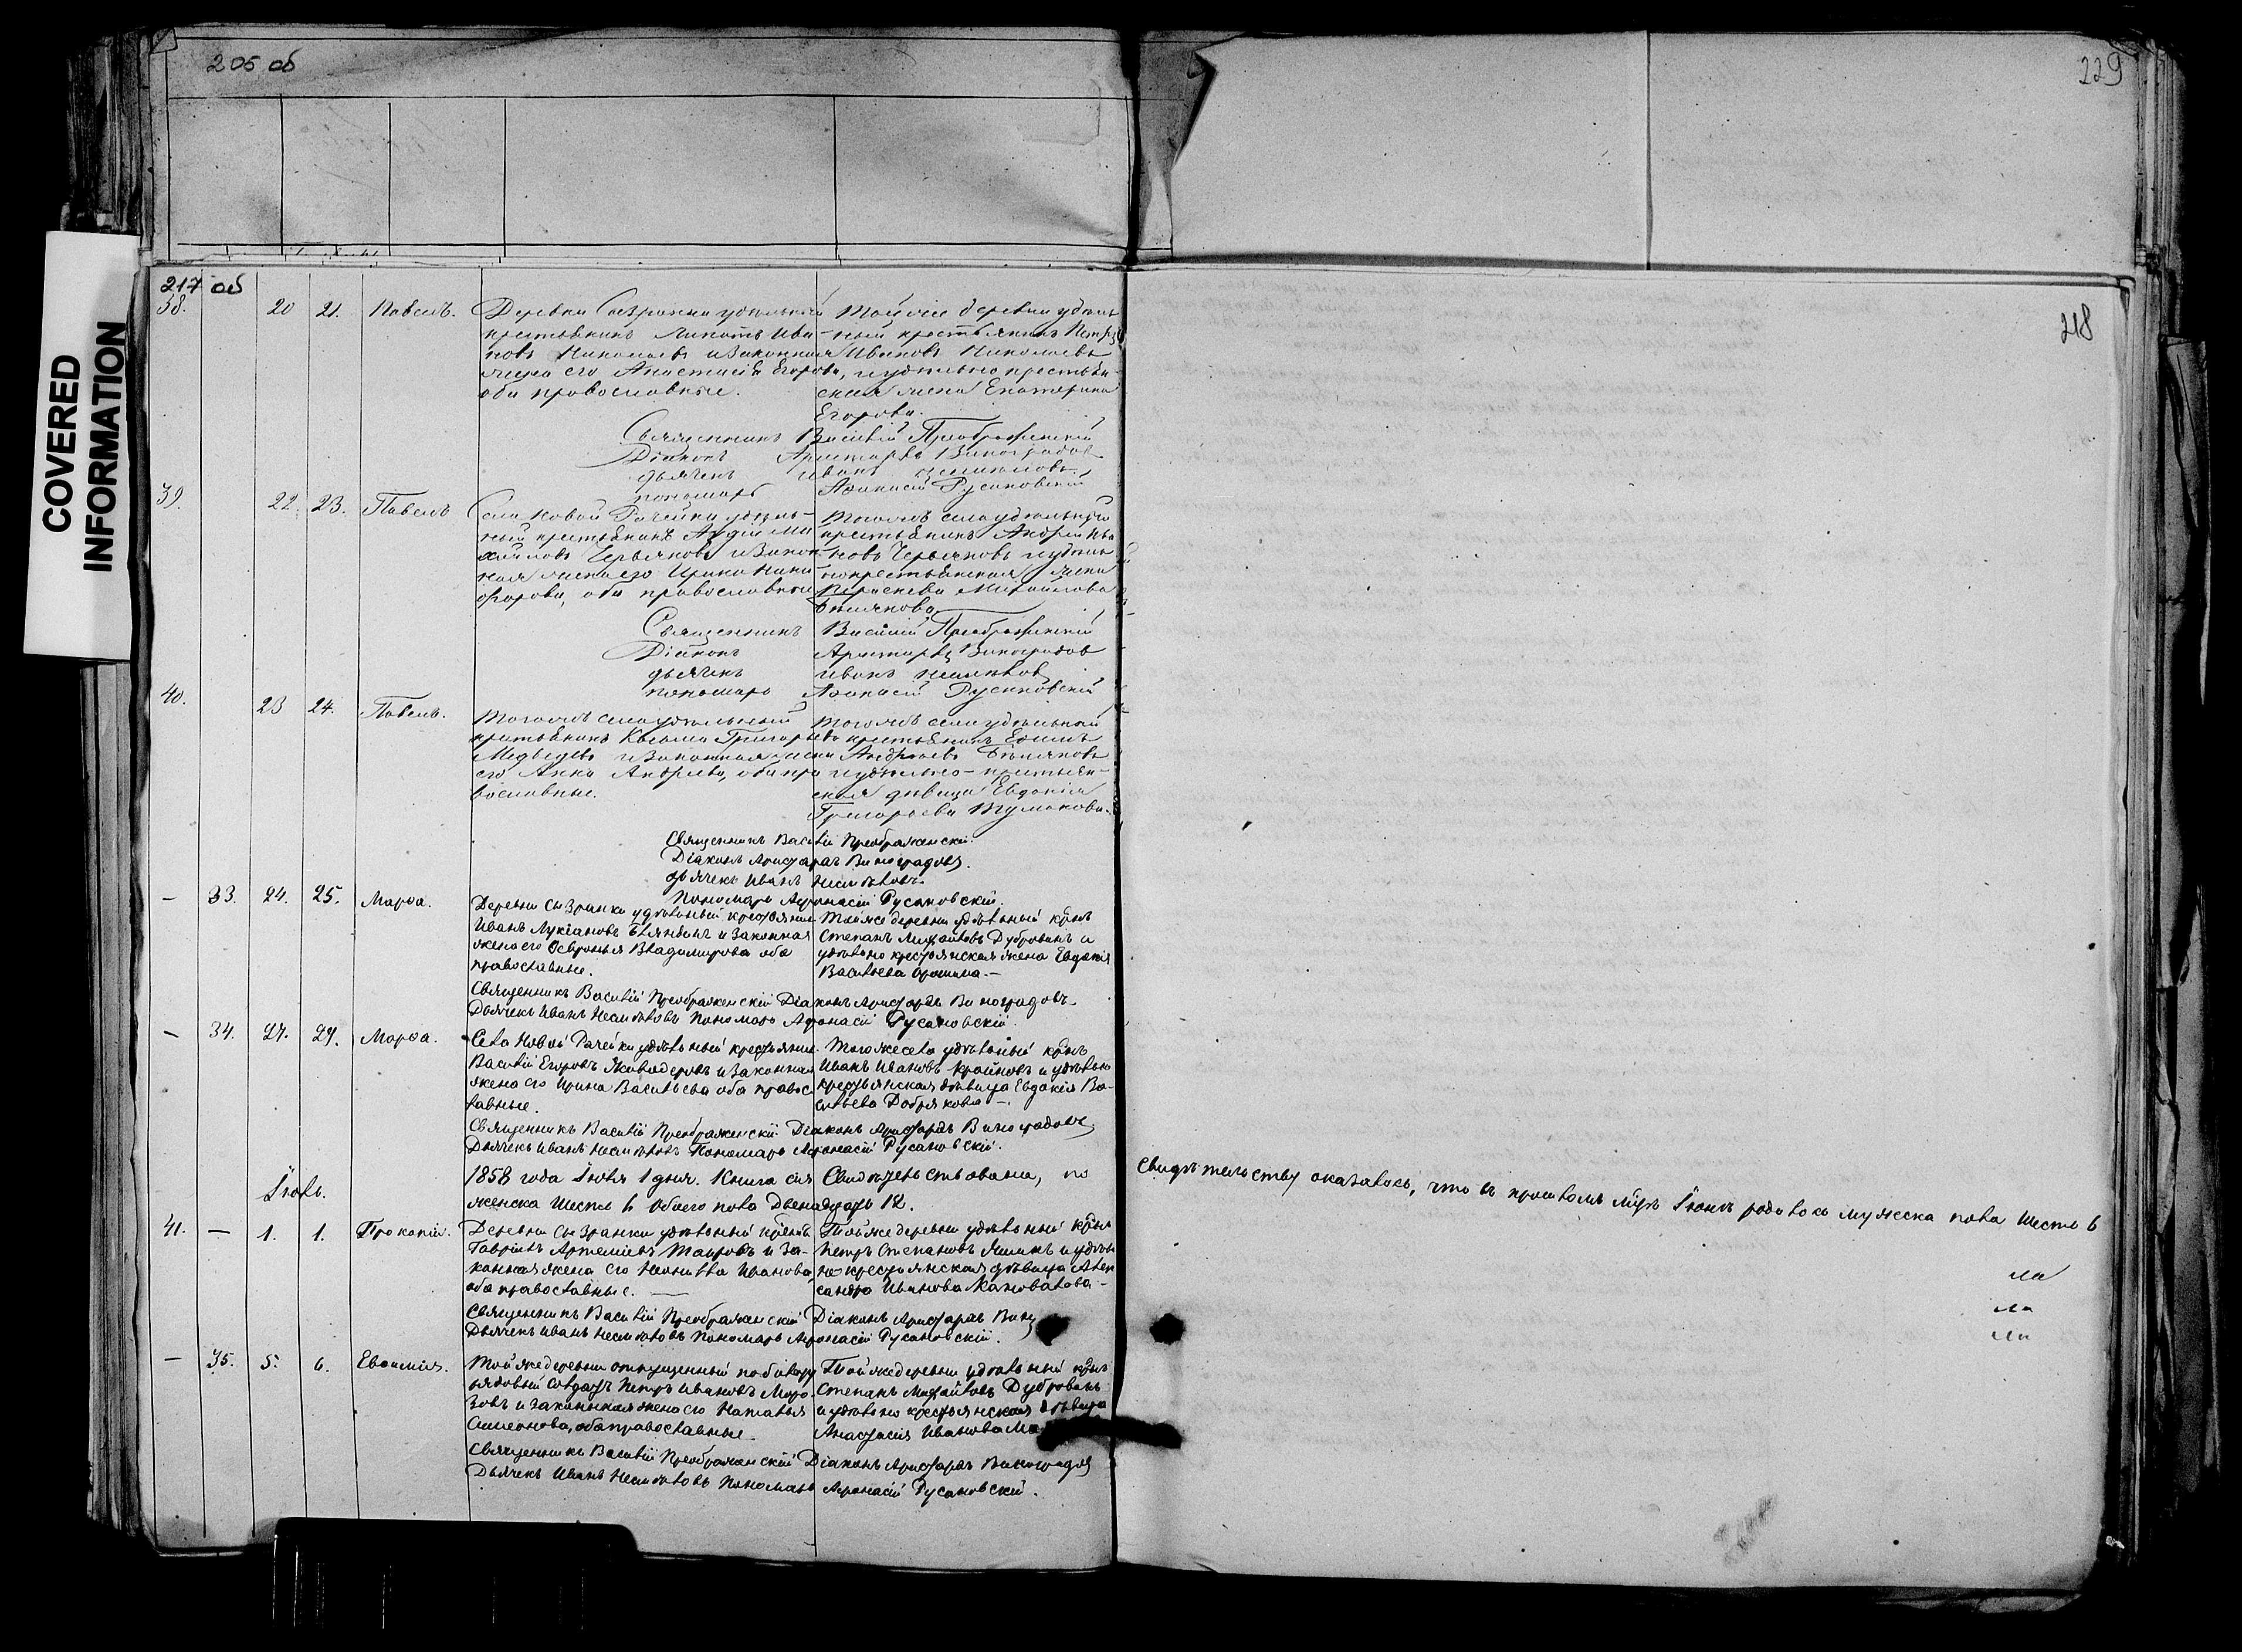 205 об
229
COVERED
INFORMATION
217 об
218
38. 20 21. Павелъ. Деревни Сызранки удѣльный
крестьянинъ Липатъ Ива-
новъ Николаевъ и законная
жена его Анастасія Егорова,
оба православные.
Той же деревни удѣль
ный крестьянинъ Петръ
Ивановъ Николаевъ
и удѣльно крестьян-
ская жена Екатерина
Егорова.
Священникъ Василій Преображенскій
Діаконъ Аристархъ Виноградовъ
дьячекъ Иванъ
пономарь Афанасій Русановскій
39. 22. 23. Павелъ Села Новой Рачейки удѣль-
ный крестьянинъ Ми
хайловъ Червяковъ и закон
ная жена его Ирина Ники
форова, оба православные
Того жъ села удѣльный
крестьянинъ Андрей Ива
новъ Червяковъ и удѣль
нокрестьянская жена
Параскева Михайлова
Бѣлякова
Священникъ Василій Преображенскій
Діаконъ Аристархъ Виноградовъ
дьячекъ Иванъ
пономарь Афанасій Русановскій
40. 23 24. Павелъ. Того жъ села удѣльный
крестьянинъ Косьма Григорьевъ
Медвѣдевъ и законная жена
его Анна Андреева, оба пра
вославные.
Того жъ села удѣльный
крестьянинъ Ефимъ
Андреевъ Бѣляковъ
и удѣльно-крестьян-
ская дѣвица Евдокія
Григорьева Тумакова.
Священникъ Василій Преображенскій.
Діаконъ Аристархъ Виноградовъ.
Дьячекъ Иванъ
Пономарь Афанасій Русановскій.
— 33. 24. 25. Марѳа. Деревни Сызранки удѣльный крестьянинъ
Иванъ Лукіановъ и законная
жена его Владимирова оба
православные.
Той же деревни удѣльный крнъ
Степанъ Михайловъ Дубровинъ и
удѣльно крестьянская жена Евдокія
Васильева
Священникъ Василій Преображенскій Діаконъ Аристархъ Виноградовъ
Дьячекъ Иванъ Пономарь Афанасій Русановскій.
— 34. 27. 29. Марѳа. Села Новой Рачейки удѣльный крестьянинъ
Василій Егоровъ и законная
жена его Ирина Васильева оба правос
лавные.
Того же села удѣльный крнъ
Иванъ Ивановъ Крайновъ и удѣльно
крестьянская дѣвица Евдокія Ва-
сильева Добрякова —.
Священникъ Василій Преображенскій Діаконъ Аристархъ Виноградовъ
Дьячекъ Иванъ Пономарь Афанасій Русановскій.
1858 года Іюля 1 дня. Книга сія Свидѣтельствована, по свидѣтельству оказалось, что въ прошломъ мцѣ Іюнѣ родилось мужеска пола Шесть 6
женска Шесть 6 Обоего пола Двенадцать 12.
Іюль.
41. — 1. 1. Прокопій. Деревни Сызранки удѣльный
Гавріилъ Артеміевъ и за-
конная жена его Иванова
оба православные. —
Той же деревни удѣльный крнъ
Петръ Степановъ и удѣль
но крестьянская дѣвица Алек
сандра Иванова
Священникъ Василій Преображенскій Діаконъ Аристархъ Вино
Дьячекъ Иванъ Пономарь Афанасій Русановскій.
— 35. 5. 6. Евѳимія. Той же деревни отпущенный по билету
рядовый Солдатъ Петръ Ивановъ Моро
зовъ и законная жена его Наталья
Симеонова, оба православные.
Той же деревни удѣльный крнъ
Степанъ Михайловъ Дубровинъ
и удѣльно крестьянская дѣвица
Анастасія Иванова
Священникъ Василій Преображенскій Діаконъ Аристархъ Виноградовъ
Дьячекъ Иванъ Пономарь Афанасій Русановскій.